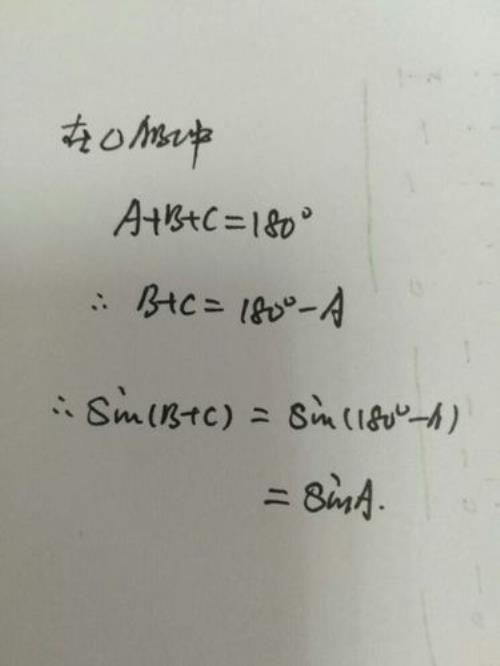 在△ABC中
A+B+C=180°
∴ B+C=180°-A
∴ Sin(B+C) = Sin(180°-A)
= SinA.